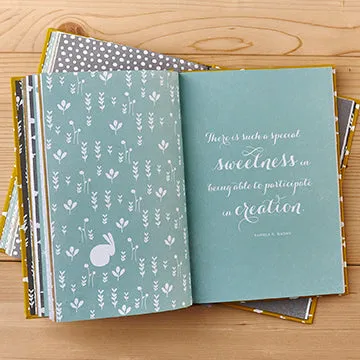 There is such a special
sweetness in
being able to participate
in creation.
PAMELA S. NADAV